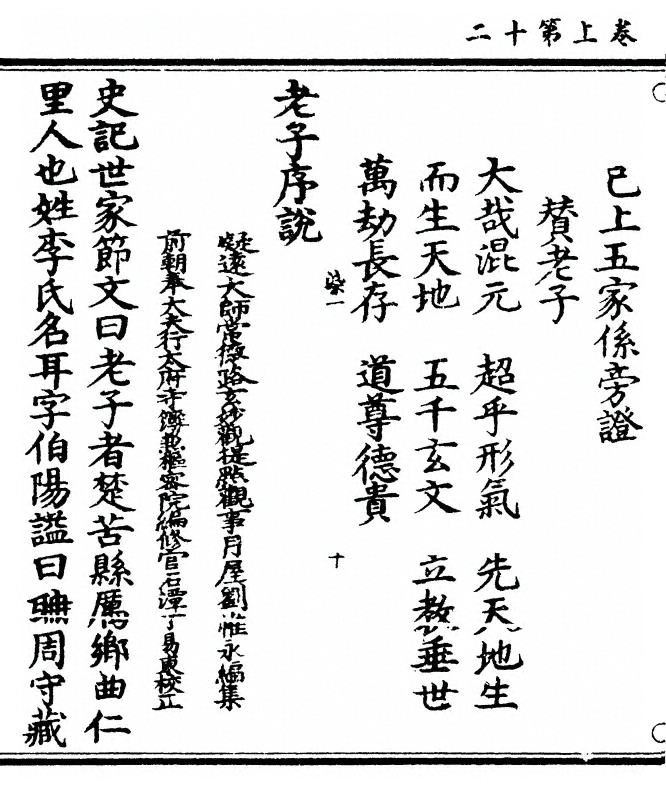 卷上第十二
已上五家係旁證
贊老子
大哉混元　超乎形氣　先天地生
而生天地　五千玄文　立教垂世
萬劫長存　道尊德貴
染一　十
老子序說
凝遠大師常德路玄妙觀提點觀事月屋劉惟永編集
前朝奉大夫行太府寺簿兼樞密院編修官石潭丁易東校正
史記世家節文曰老子者楚苦縣厲鄉曲仁
里人也姓李氏名耳字伯陽謚曰聃周守藏